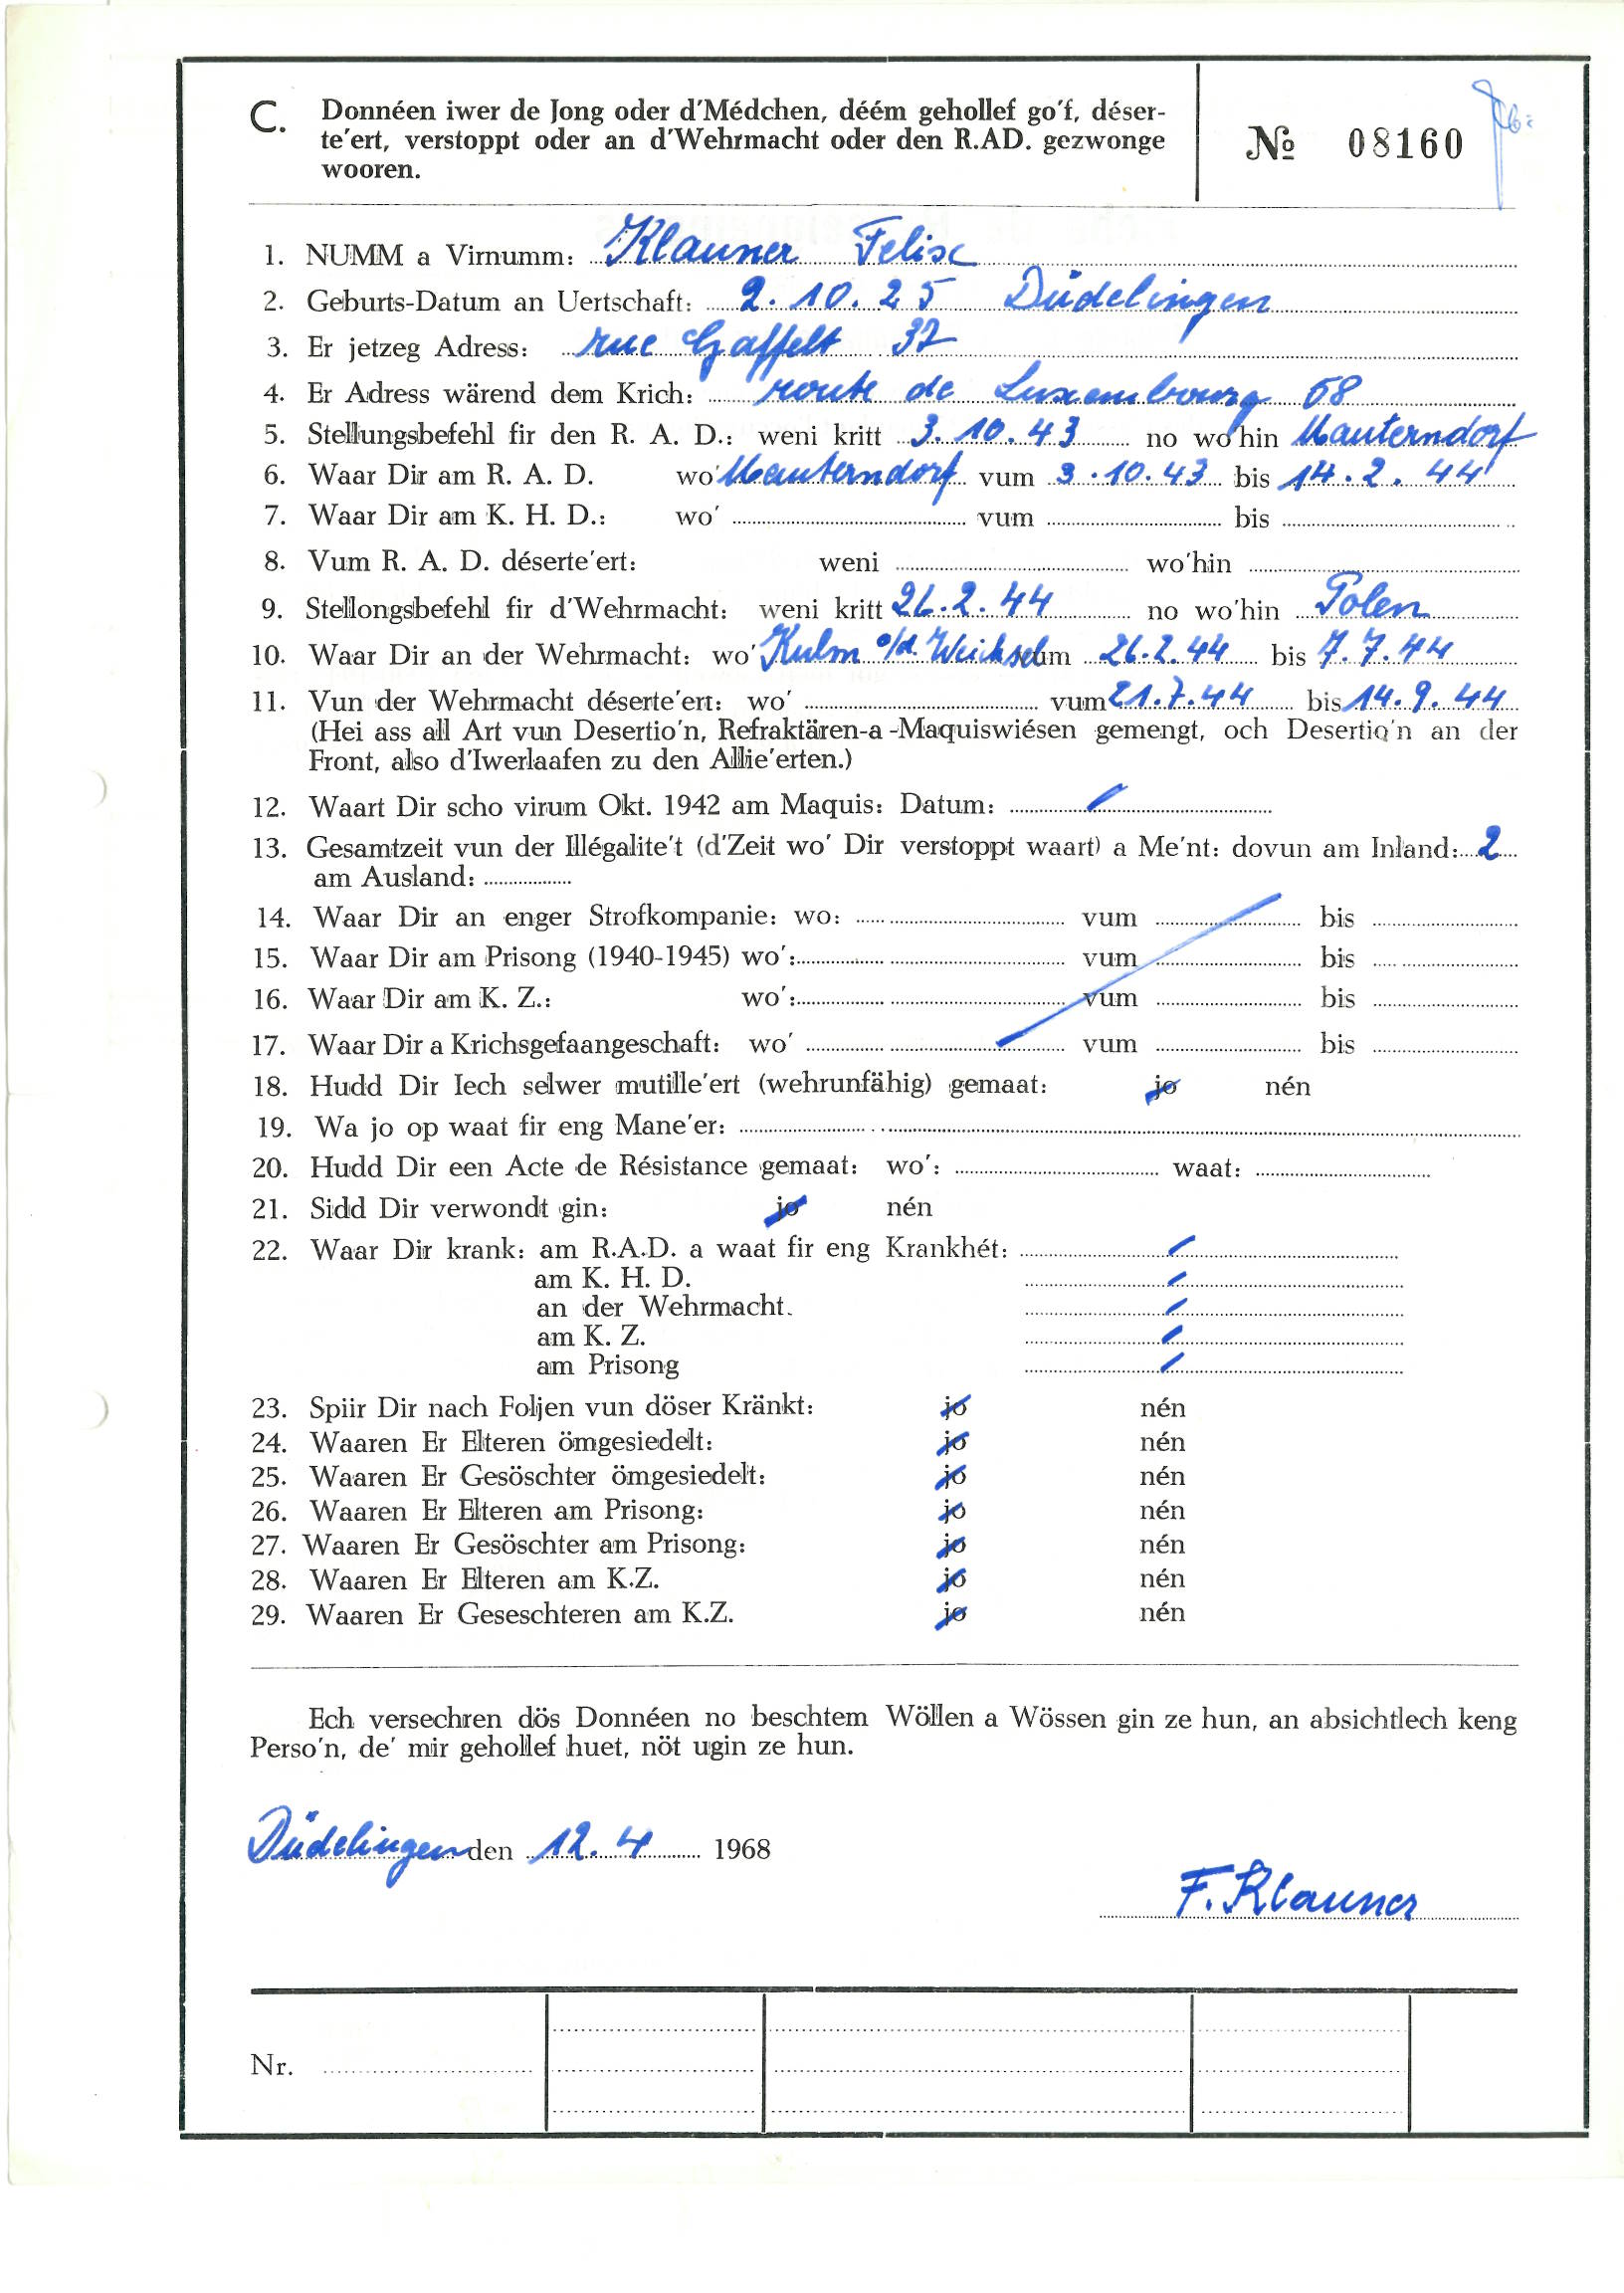 C. Donnéen iwer de Jong oder d'Médchen, déém gehollef go'f, déser-
te'ert, verstoppt oder an d'Wehrmacht oder den R.AD. gezwonge
wooren.
№ 08160
1. NUMM a Virnumm: Klauner Felix
2. Geburts-Datum an Uertschaft: 2.10.25 Düdelingen
3. Er jetzeg Adress: rue Gaffelt 37
4. Er Adress wärend dem Krich: route de Luxembourg 68
5. Stellungsbefehl fir den R. A. D.: weni kritt 3.10.43 no wo'hin Mauterndorf
6. Waar Dir am R. A. D. wo' Mauterndorf vum 3.10.43 bis 14.2.44
7. Waar Dir am K. H. D.: wo' vum bis
8. Vum R. A. D. déserte'ert: weni wo'hin
9. Stellongsbefehl fir d'Wehrmacht: weni kritt 26.2.44 no wo'hin Polen
10. Waar Dir an der Wehrmacht: wo' Kulm a/d. Weichsel vum 26.2.44 bis 7.7.44
11. Vun der Wehrmacht déserte'ert: wo' vum 21.7.44 bis 14.9.44
(Hei ass all Art vun Desertio'n, Refraktären-a-Maquiswiésen gemengt, och Desertio'n an der
Front, also d'Iwerlaafen zu den Allie'erten.)
12. Waart Dir scho virum Okt. 1942 am Maquis: Datum:
13. Gesamtzeit vun der Illégalite't (d'Zeit wo' Dir verstoppt waart) a Me'nt: dovun am Inland: 2
am Ausland:
14. Waar Dir an enger Strofkompanie: wo: vum bis
15. Waar Dir am Prisong (1940-1945) wo': vum bis
16. Waar Dir am K. Z.: wo': vum bis
17. Waar Dir a Krichsgefaangeschaft: wo' vum bis
18. Hudd Dir Iech selwer mutille'ert (wehrunfähig) gemaat: jo nén
19. Wa jo op waat fir eng Mane'er:
20. Hudd Dir een Acte de Résistance gemaat: wo': waat:
21. Sidd Dir verwondt gin: jo nén
22. Waar Dir krank: am R.A.D. a waat fir eng Krankhét:
am K. H. D.
an der Wehrmacht.
am K. Z.
am Prisong
23. Spiir Dir nach Foljen vun döser Kränkt: jo nén
24. Waaren Er Elteren ömgesiedelt: jo nén
25. Waaren Er Gesöschter ömgesiedelt: jo nén
26. Waaren Er Elteren am Prisong: jo nén
27. Waaren Er Gesöschter am Prisong: jo nén
28. Waaren Er Elteren am K.Z. jo nén
29. Waaren Er Geseschteren am K.Z. jo nén
Ech versechren dös Donnéen no beschtem Wöllen a Wössen gin ze hun, an absichtlech keng
Perso'n, de' mir gehollef huet, nöt ugin ze hun.
Düdelingen den 12.4 1968
F. Klauner
Nr.